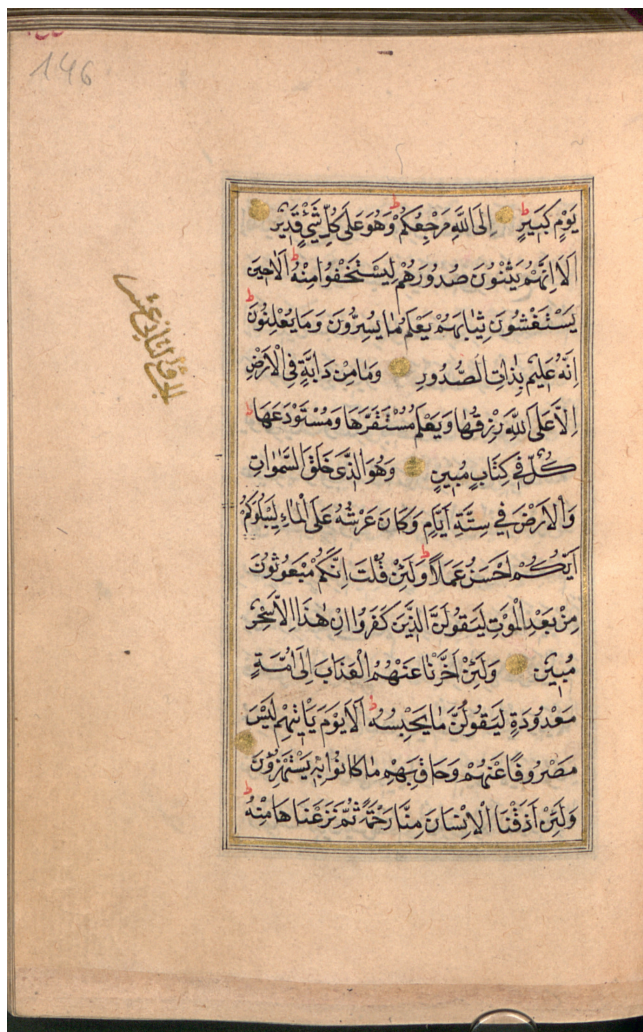 146
يَوْمٍ كَبِيرٍ اِلَى اللّٰهِ مَرْجِعُكُمْ وَهُوَ عَلٰى كُلِّ شَيْءٍ قَدِيرٌ
اَلَا اِنَّهُمْ يَثْنُونَ صُدُورَهُمْ لِيَسْتَخْفُوا مِنْهُ اَلَا حِينَ
يَسْتَغْشُونَ ثِيَابَهُمْ يَعْلَمُ مَا يُسِرُّونَ وَمَا يُعْلِنُونَ
اِنَّهُ عَلِيمٌ بِذَاتِ الصُّدُورِ وَمَا مِنْ دَابَّةٍ فِي الْاَرْضِ
اِلَّا عَلَى اللّٰهِ رِزْقُهَا وَيَعْلَمُ مُسْتَقَرَّهَا وَمُسْتَوْدَعَهَا
كُلٌّ فِي كِتَابٍ مُبِينٍ وَهُوَ الَّذِي خَلَقَ السَّمٰوَاتِ
وَالْاَرْضَ فِي سِتَّةِ اَيَّامٍ وَكَانَ عَرْشُهُ عَلَى الْمَاءِ لِيَبْلُوَكُمْ
اَيُّكُمْ اَحْسَنُ عَمَلًا وَلَئِنْ قُلْتَ اِنَّكُمْ مَبْعُوثُونَ
مِنْ بَعْدِ الْمَوْتِ لَيَقُولَنَّ الَّذِينَ كَفَرُوا اِنْ هٰذَا اِلَّا سِحْرٌ
مُبِينٌ وَلَئِنْ اَخَّرْنَا عَنْهُمُ الْعَذَابَ اِلٰى اُمَّةٍ
مَعْدُودَةٍ لَيَقُولُنَّ مَا يَحْبِسُهُ اَلَا يَوْمَ يَأْتِيهِمْ لَيْسَ
مَصْرُوفًا عَنْهُمْ وَحَاقَ بِهِمْ مَا كَانُوا بِهِ يَسْتَهْزِؤُنَ
وَلَئِنْ اَذَقْنَا الْاِنْسَانَ مِنَّا رَحْمَةً ثُمَّ نَزَعْنَاهَا مِنْهُ
الجزء الثاني عشر